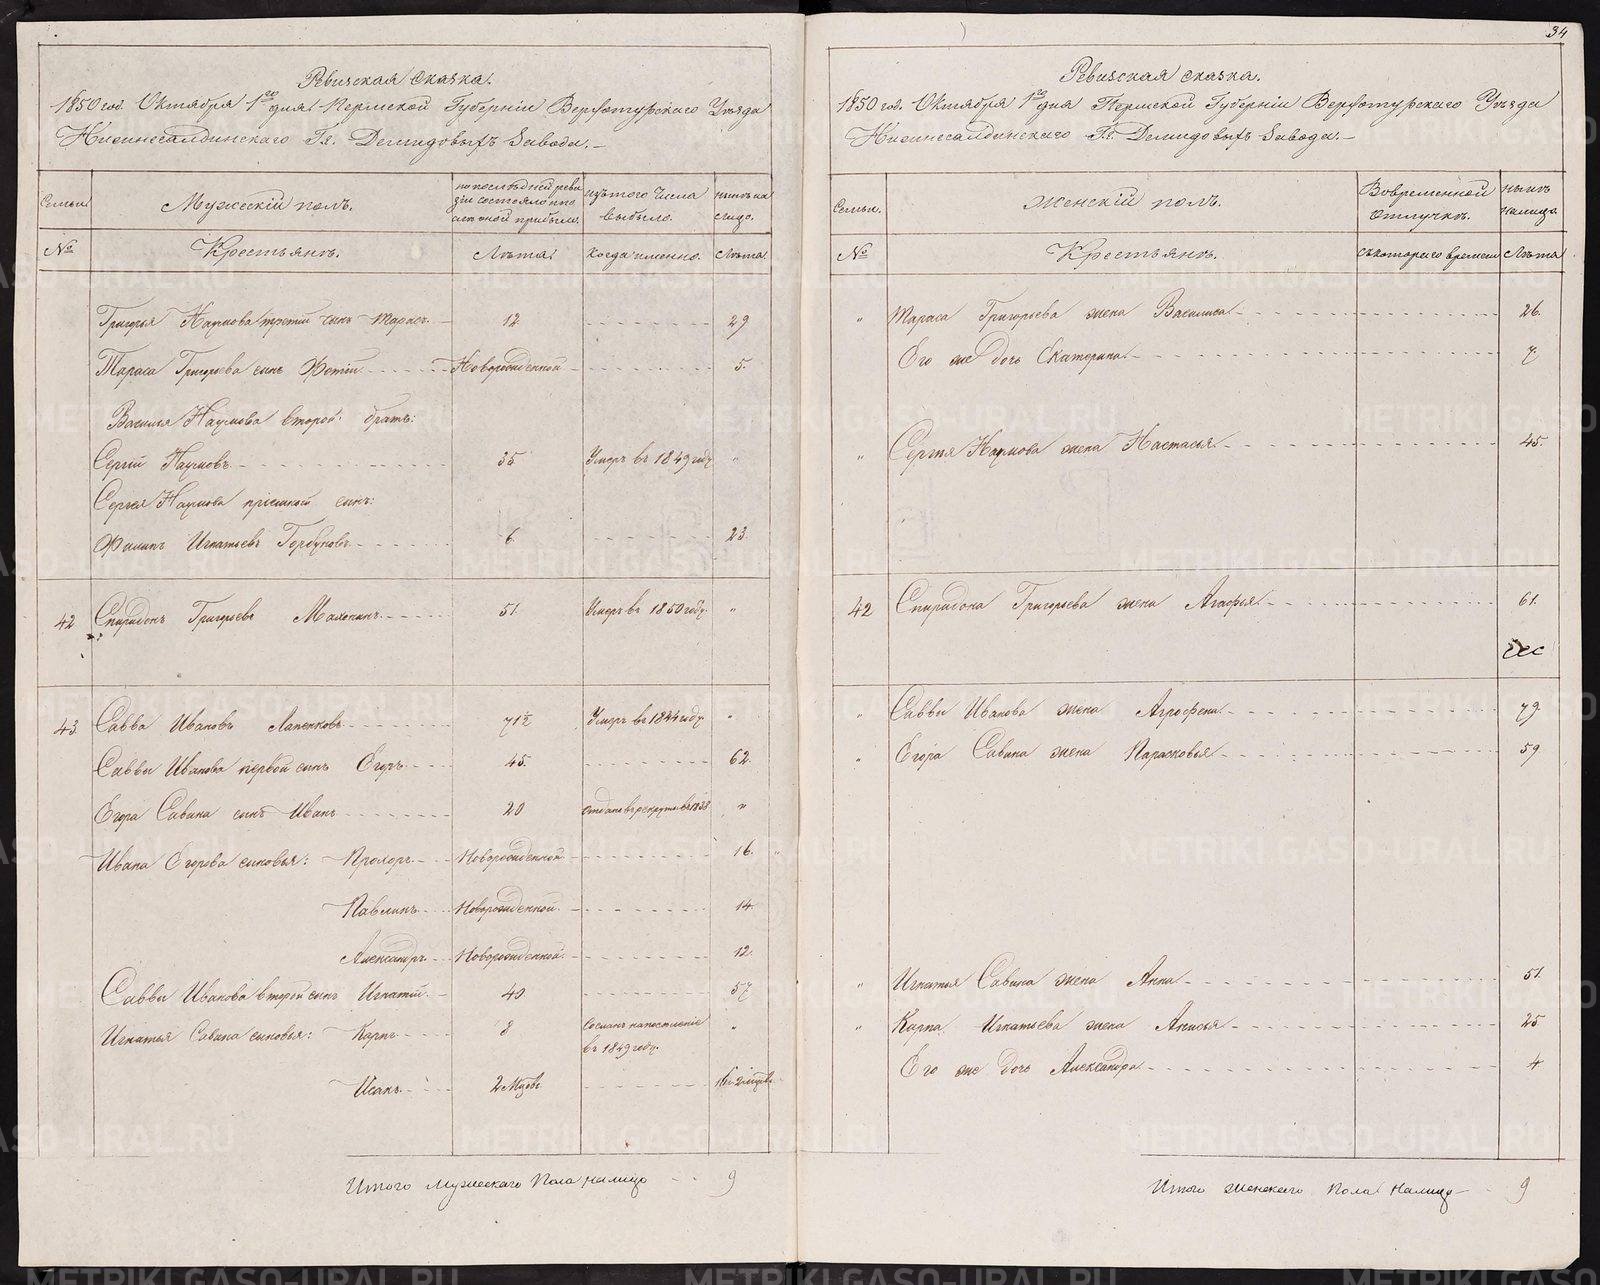 34
Ревизская сказка.
1850 год. Октября 1го дня Пермской Губернiи Верхотурскаго Уѣзда
Нижнесалдинскаго Гг. Демидовыхъ Завода.
Семьи.
Мужескiй полъ.
по последней реви
зiи состояло или
после оной прибыло.
изъ того числа
выбыло.
нынѣ на
лицо.
№
Крестьянъ.
Лѣта.
когда именно.
Лѣта
Григорья Наумова третiй сынъ Тарасъ. 12 29
Тараса Григорьева сынъ Фотiй Новорожденной 5.
Василья Наумова второй братъ:
Сергiй Наумовъ 35 Умеръ въ 1849 году "
Сергея Наумова прiемной сынъ:
Филипъ Игнатьевъ Горбуновъ 6 23.
42 Спиридонъ Григорьевъ 51. Умеръ въ 1850 году. "
43. Савва Ивановъ Лапенковъ 71½ Умеръ въ 1844 году. "
Саввы Иванова первой сынъ Егоръ 45. 62.
Егора Савина сынъ Иванъ 20 отданъ въ рекруты въ 1838 "
Ивана Егорова сыновья: Прохоръ Новорожденной 16.
Павлинъ Новорожденной 14.
Александръ Новорожденной 12.
Саввы Иванова второй сынъ Игнатiй. 40 57
Игнатья Савина сыновья: Карпъ 8 Сосланъ на поселенiе "
въ 1849 году.
Исакъ 2 мцовъ
Итого Мужескаго Пола налицо 9
Ревизская сказка.
1850 год. Октября 1го дня Пермской Губернiи Верхотурскаго Уѣзда
Нижнесалдинскаго Гг. Демидовыхъ Завода.
Семьи.
Женскiй полъ.
Во временной
отлучкѣ.
нынѣ
налицо.
№
Крестьянъ.
съ котораго времени
Лѣта
" Тараса Григорьева жена Василиса 26.
Его же дочь Екатерина 7.
" Сергея Наумова жена Настасья 45.
42 Спиридона Григорьева жена Агафья 61.
" Саввы Иванова жена Агрофена 79.
" Егора Савина жена Парасковья 59
" Игнатья Савина жена Анна 51.
" Карпа Игнатьева жена Анисья 25
Его же дочь Александра 4
Итого Женскаго Пола Налицо 9
METRIKI.GASO-URAL.RU